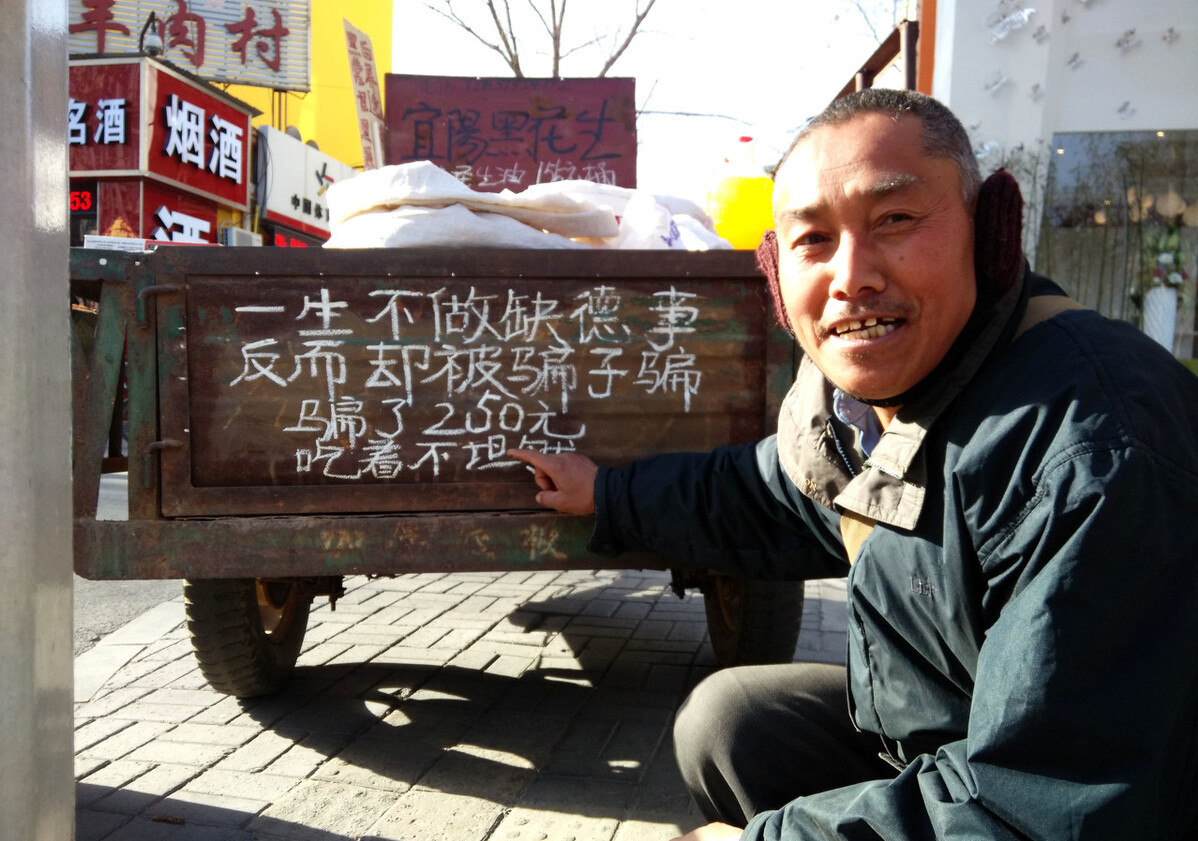 羊肉村
名酒
烟酒
酒
53
中国体
宜陽黑花生
花生油
一生不做缺德事
反而却被骗子骗
骗了250元
吃着不坦然